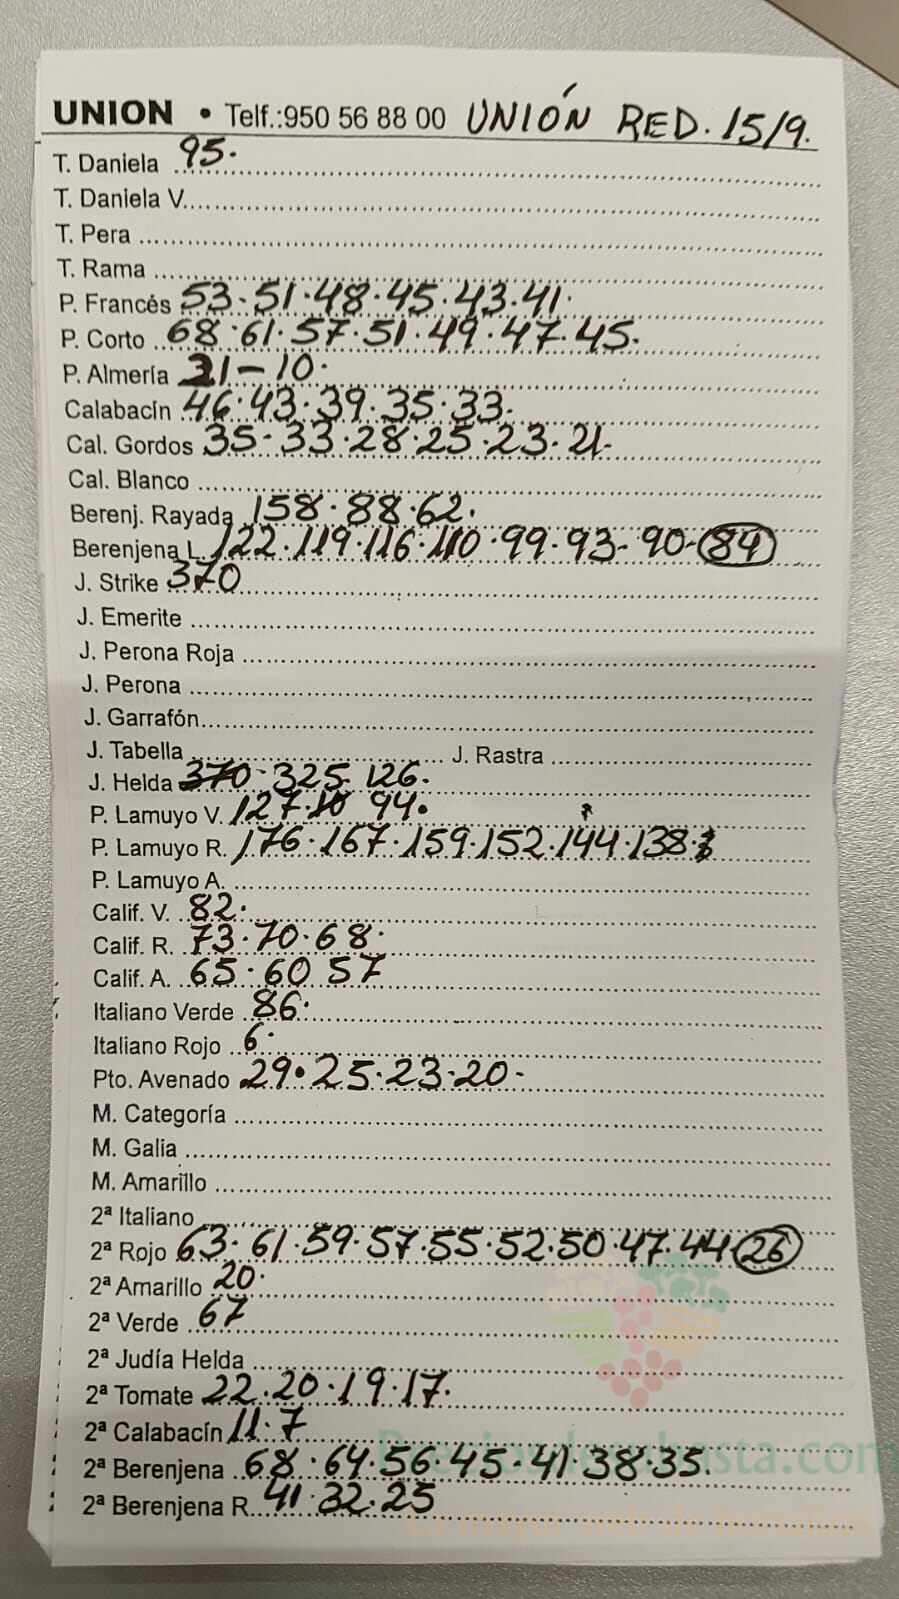 UNION • Telf.:950 56 88 00 UNIÓN RED. 15/9.
T. Daniela 95.
T. Daniela V.
T. Pera
T. Rama
P. Francés 53.51.48.45.43.41.
P. Corto 68.61.57.51.49.47.45.
P. Almería 21-10.
Calabacín 46.43.39.35.33.
Cal. Gordos 35-33.28.25.23.21-
Cal. Blanco
Berenj. Rayada 158.88.62.
Berenjena L. 122.119.116.110.99.93-90-84
J. Strike 370
J. Emerite
J. Perona Roja
J. Perona
J. Garrafón
J. Tabella J. Rastra
J. Helda 370.325.126.
P. Lamuyo V. 127.10 94.
P. Lamuyo R. 176.167.159.152.144.138.
P. Lamuyo A.
Calif. V. 82.
Calif. R. 73.70.68.
Calif. A. 65.60 57
Italiano Verde 86.
Italiano Rojo 6.
Pto. Avenado 29.25.23.20-
M. Categoría
M. Galia
M. Amarillo
2ª Italiano
2ª Rojo 63.61.59.57.55.52.50.47.44 26
2ª Amarillo 20.
2ª Verde 67
2ª Judía Helda
2ª Tomate 22.20.19.17.
2ª Calabacín 11.7
2ª Berenjena 68.64.56.45.41.38.35.
2ª Berenjena R. 41.32.25
La mayor web de hortalizas